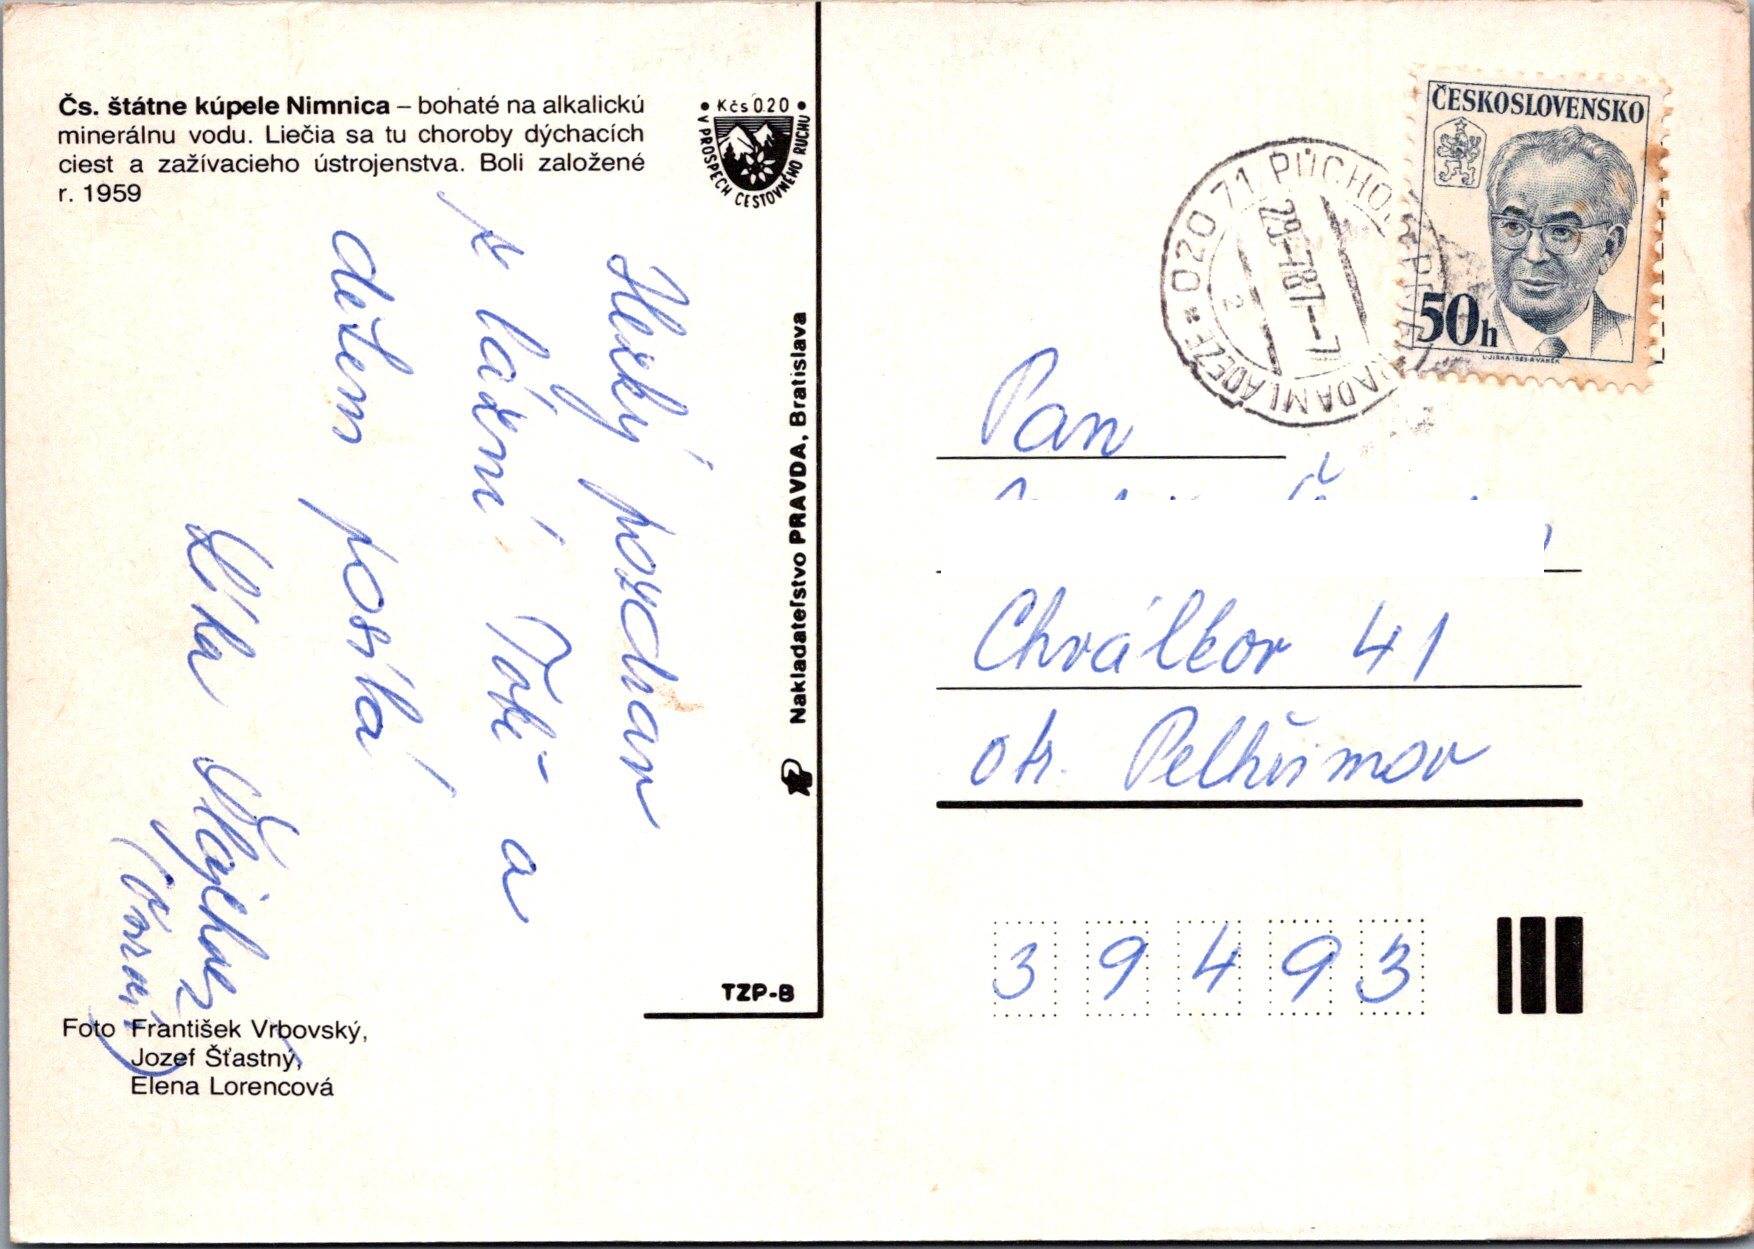 Čs. štátne kúpele Nimnica – bohaté na alkalickú
minerálnu vodu. Liečia sa tu choroby dýchacích
ciest a zažívacieho ústrojenstva. Boli založené
r. 1959
• Kčs 0.20 •
V PROSPECH CESTOVNÉHO RUCHU
Hezký pozdrav
z lázní Tobě a
dětem posílá
Míla
Nakladateľstvo PRAVDA, Bratislava
TZP-8
Foto František Vrbovský,
Jozef Šťastný,
Elena Lorencová
ČESKOSLOVENSKO
50h
020 71 PÚCHOV
29.-7.87--7
2
MLÁDEŽE
Pan
Chválkov 41
okr. Pelhřimov
39493